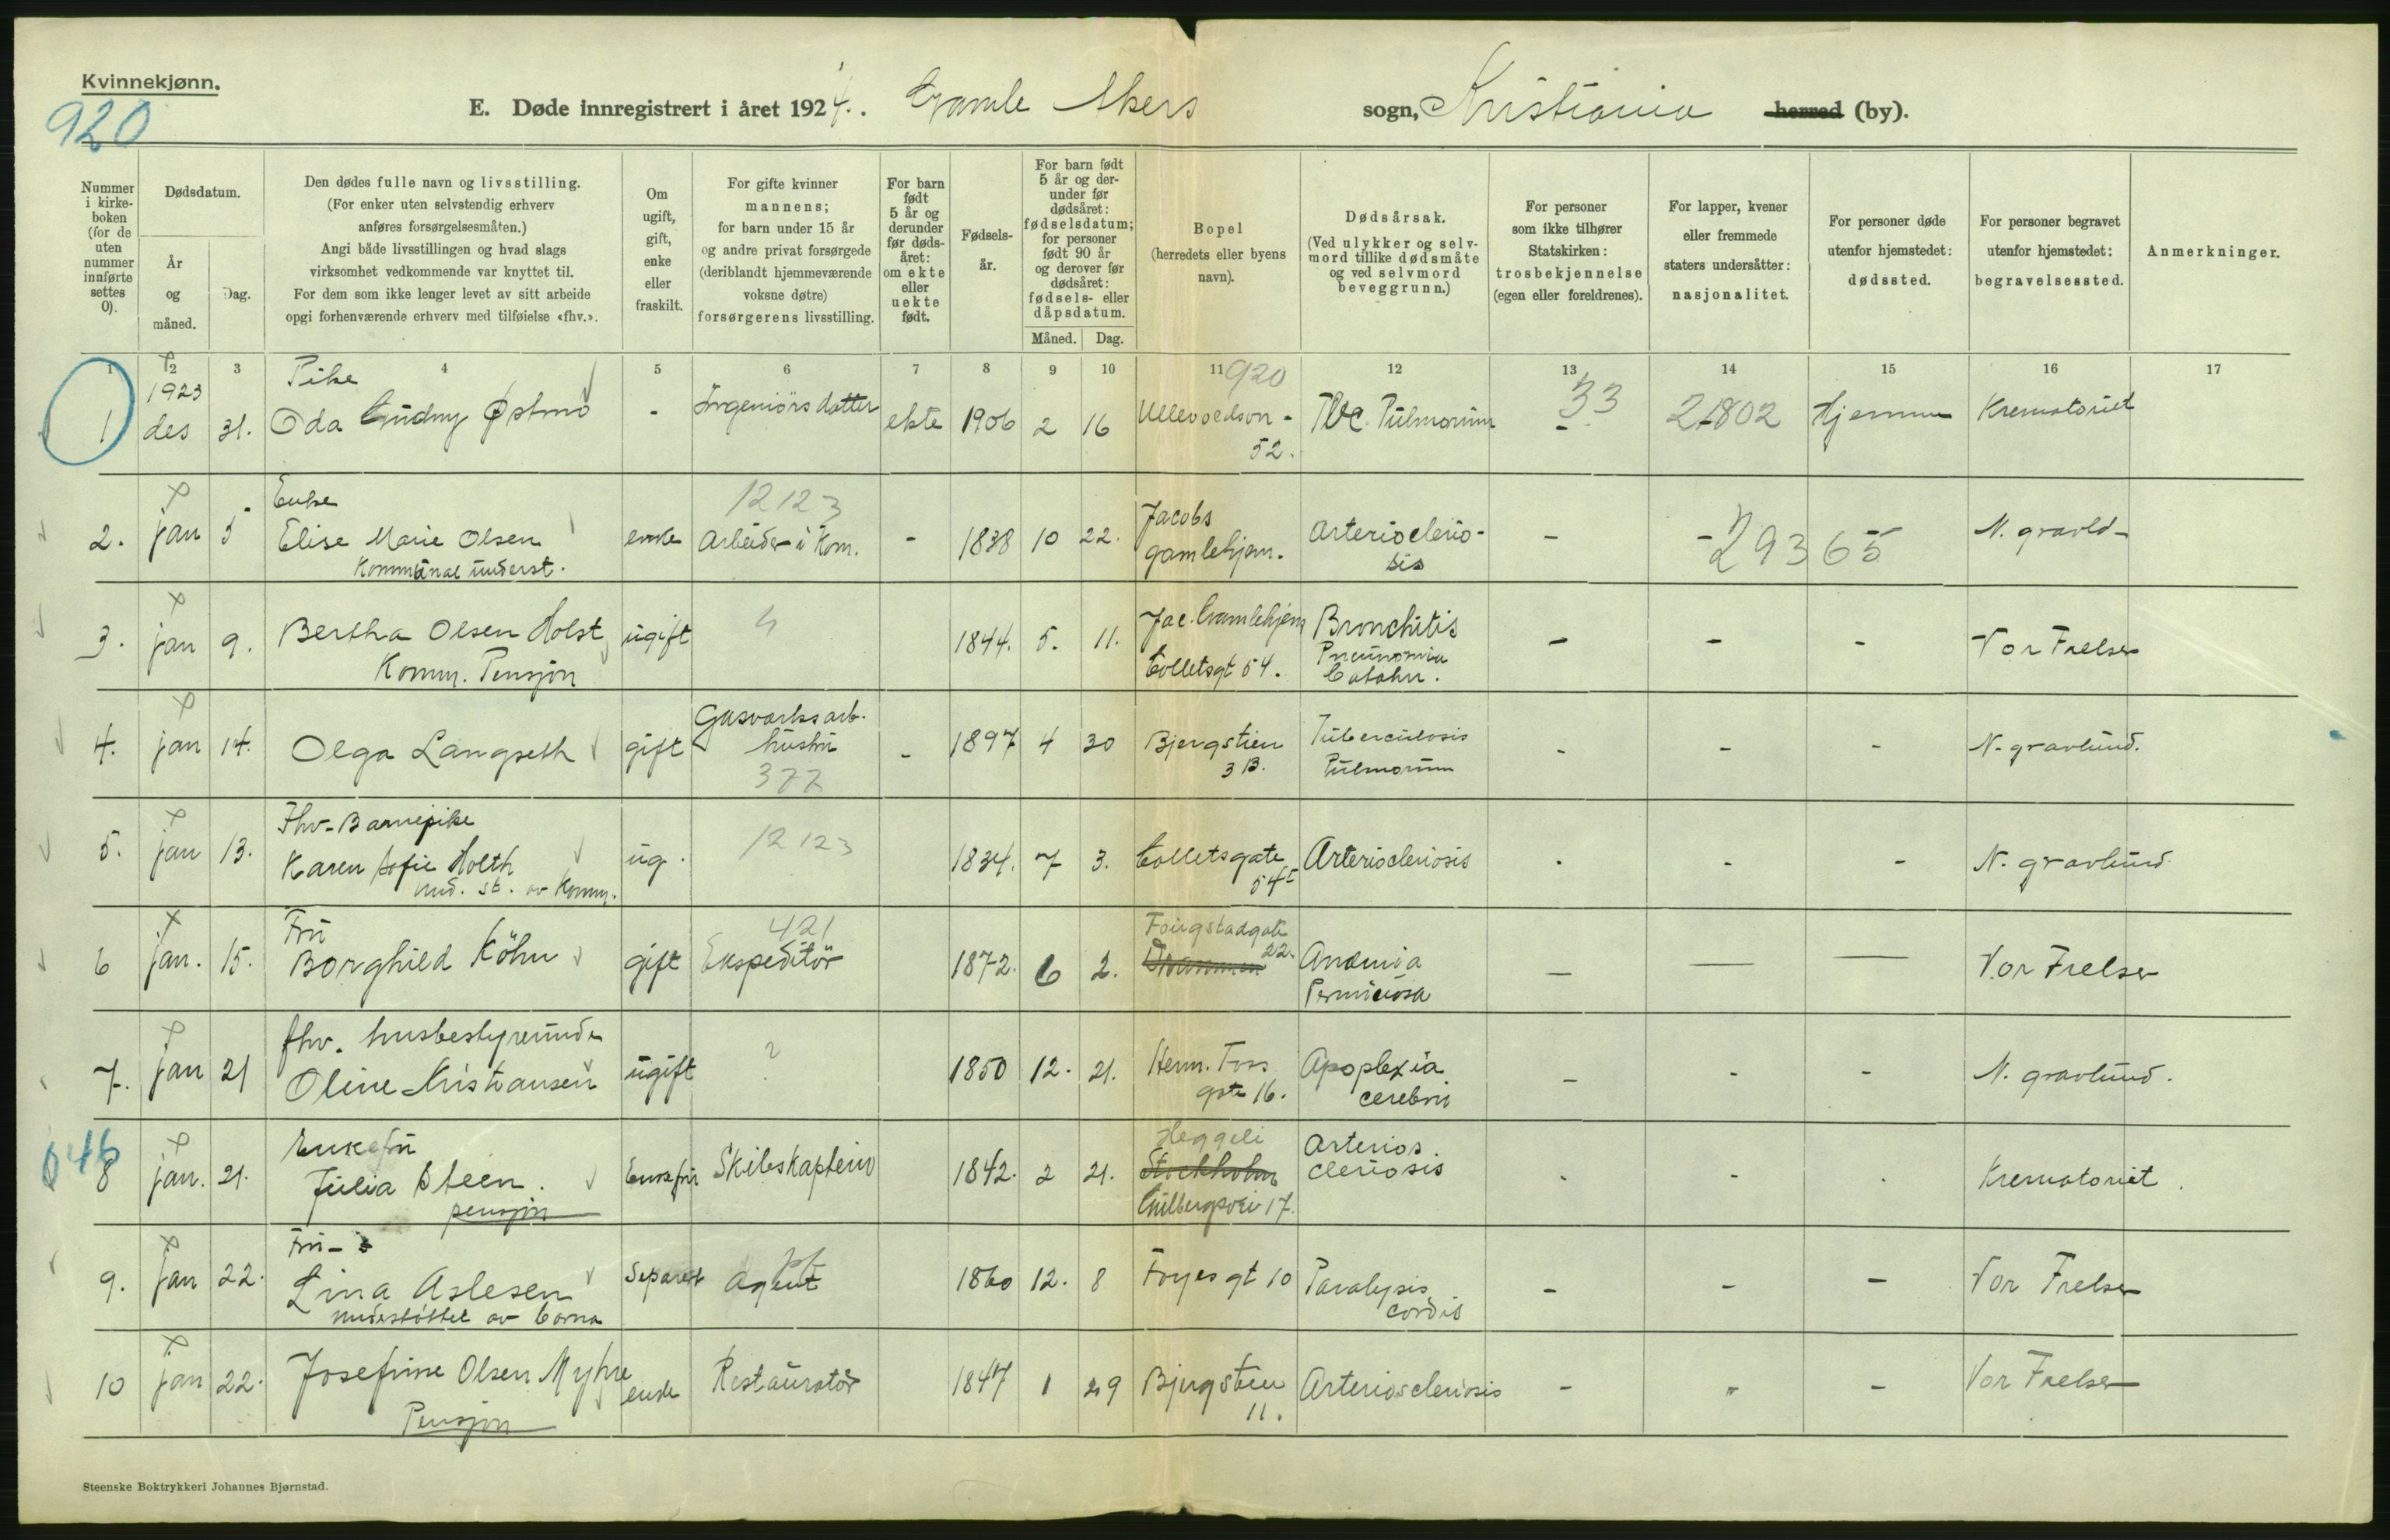 Kvinnekjønn.
920
E. Døde innregistrert i året 1924. Gamle Akers sogn, Kristiania herred (by).
Nummer i kirkeboken (for de uten nummer innførte settes 0).
Dødsdatum.
År og måned.
Dag.
Den dødes fulle navn og livsstilling.
(For enker uten selvstendig erhverv
anføres forsørgelsesmåten.)
Angi både livsstillingen og hvad slags
virksomhet vedkommende var knyttet til.
For dem som ikke lenger levet av sitt arbeide
opgi forhenværende erhverv med tilføielse «fhv.».
Om ugift, gift, enke eller fraskilt.
For gifte kvinner
mannens;
for barn under 15 år
og andre privat forsørgede
(deriblandt hjemmeværende
voksne døtre)
forsørgerens livsstilling.
For barn født 5 år og derunder før dødsåret: om ekte eller uekte født.
Fødselsår.
For barn født 5 år og derunder før dødsåret: fødselsdatum; for personer født 90 år og derover før dødsåret: fødsels- eller dåpsdatum.
Måned. Dag.
Bopel
(herredets eller byens
navn).
Dødsårsak.
(Ved ulykker og selvmord tillike dødsmåte og ved selvmord beveggrunn.)
For personer
som ikke tilhører
Statskirken:
trosbekjennelse
(egen eller foreldrenes).
For lapper, kvener
eller fremmede
staters undersåtter:
nasjonalitet.
For personer døde
utenfor hjemstedet:
dødssted.
For personer begravet
utenfor hjemstedet:
begravelsessted.
Anmerkninger.
1 2 3 4 5 6 7 8 9 10 11 12 13 14 15 16 17
1923 Pike 920 33
1 des 31. Oda Gudny Østmo - Ingeniørs datter ekte 1906 2 16 - 21802 Hjemme Krematoriet
52.
Enke 12123 Jacobs
2. jan 5 Elise Marie Olsen enke Arbeider i Kom. - 1838 10 22. gamlehjem. Arterioclerosis - - 29365 N. gravld
Kommunal underst.
3. jan 9. Bertha Olsen Holst ugift 4 1844. 5. 11. Jac. Gamlehjem Bronchitis - - - Vor Frelser
Komm. Pensjon Colletsgt 54. Pneumonia
Gasverksarb.
4. jan 14. Olga Langseth gift hustru - 1897 4 30 Bjergstien Tuberculosis - - - N. gravlund.
377 3 B. Pulmonum
Fhv. Barnepike 12123
5. jan 13. Karen Sofie Holth ug. 1834. 7 3. Colletsgate Arterioclerosis - - - N. gravlund
und. st. av Komm. 54
Fru 421
6 jan. 15. Borghild Köhn gift Ekspeditör 1872. 6 2. 22. Drammen Anæmia - - - Vor Frelser
Perniciosa
fhv. husbestyrerinde
7. jan 21 Oline Kristiansen ugift ? 1850 12. 21. Herm. Foss Apoplexia - - - N. gravlund.
gate 16. cerebri
046 Enkefru Heggeli Arterios
8 jan. 21. Julia Steen. Enkefru Skibskaptein 1842. 2 21. Stockholm clerosis - - - Krematoriet.
pensjon 17.
Fru
9. jan 22. Lina Aslesen Separert Agent 1860 12. 8 Foyes gt 10 Paralysis - - - Vor Frelser
understöttet av barna cordis
10 jan 22. Josefine Olsen Myhre enke Restauratör 1847 1 29 Bjergstien Arteriosclerosis - - - Vor Frelser
Pensjon 11.
Steenske Boktrykkeri Johannes Bjørnstad.